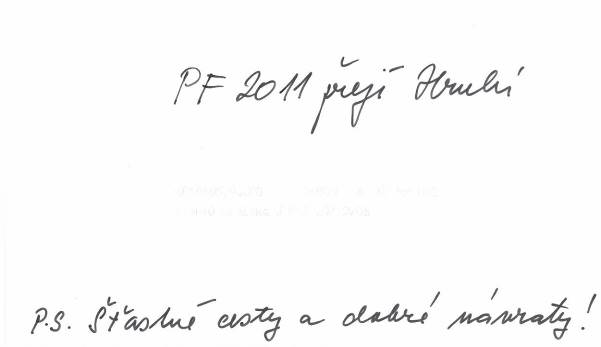 PF 2011 přejí Hrubí
P.S. Šťastné cesty a dobré návraty!